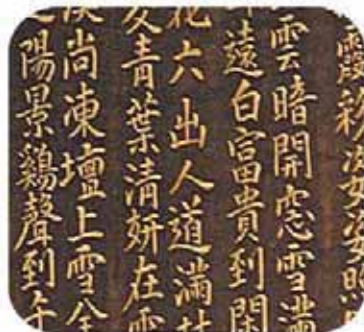 霞
雲暗開窓雪滿
遠白富貴到閑
花六出人道滿
青葉清妍在
尚凍壇上雪全
陽景鷄聲到午